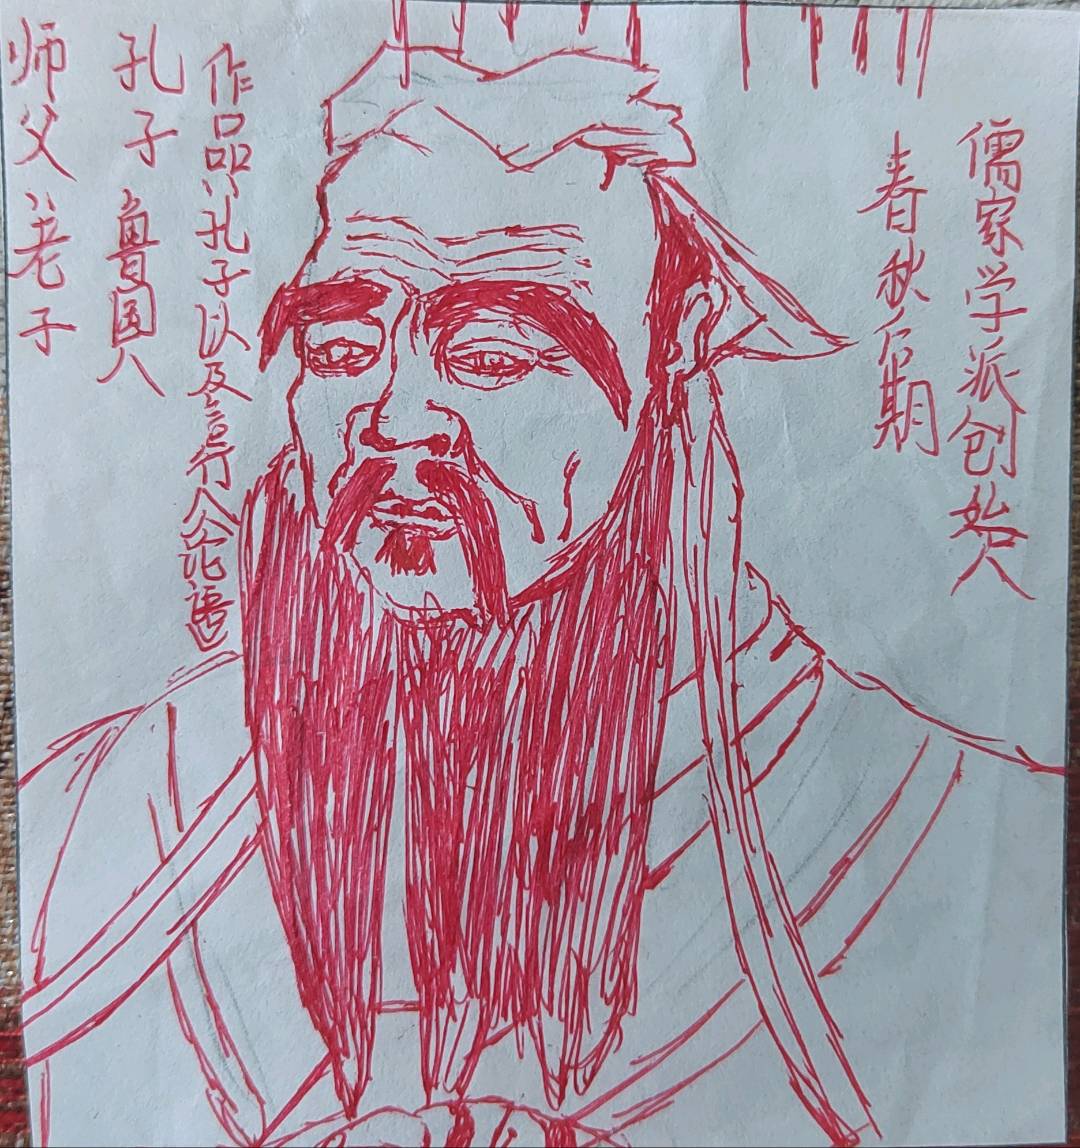 儒家学派创始人
春秋后期
作品:孔子以及言行《论语》
孔子 鲁国人
师父:老子